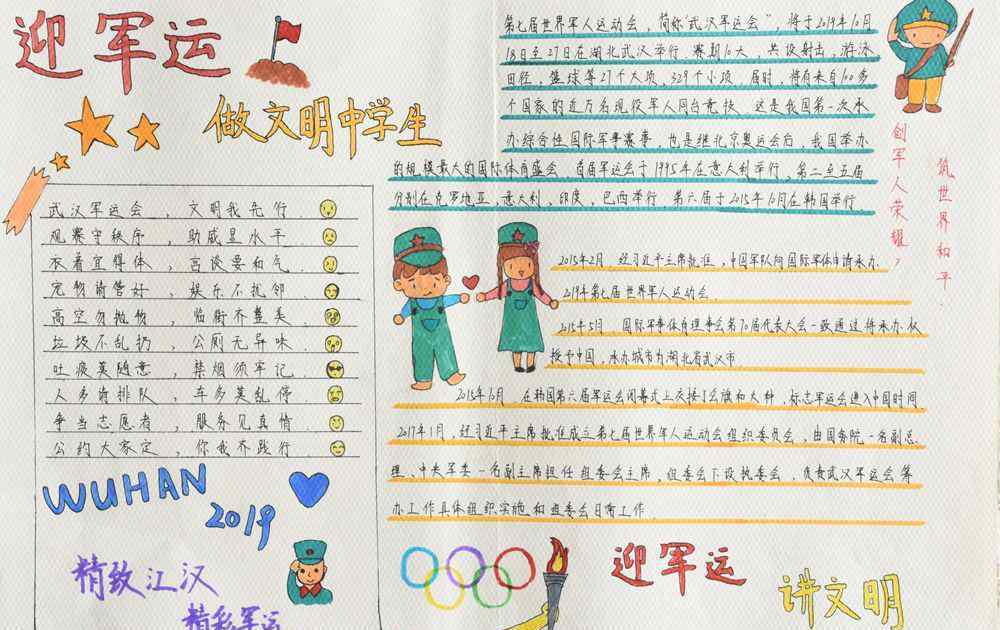 迎军运
做文明中学生
武汉军运会，文明我先行
观赛守秩序，助威显水平
衣着宜得体，言谈要和气
宠物请管好，娱乐不扰邻
高空勿抛物，临街齐整美
垃圾不乱扔，公厕无异味
吐痰莫随意，禁烟须牢记
人多请排队，车多莫乱停
争当志愿者，服务见真情
公约大家定，你我齐践行
WUHAN
2019
精致江汉
精彩军运
第七届世界军人运动会，简称“武汉军运会”，将于2019年10月
18日至27日在湖北武汉举行，赛期10天，共设射击、游泳
田径，篮球等27个大项，329个小项，届时，将有来自100多
个国家的近万名现役军人同台竞技，这是我国第一次承
办综合性国际军事赛事，也是继北京奥运会后，我国举办
的规模最大的国际体育盛会，首届军运会于1995年在意大利举行，第二至五届
分别在克罗地亚，意大利，印度，巴西举行，第六届于2015年10月在韩国举行
2015年2月，经习近平主席批准，中国军队向国际军体申请承办
2019年第七届世界军人运动会
2015年5月，国际军事体育理事会第70届代表大会一致通过将承办权
授予中国，承办城市为湖北省武汉市
2015年10月，在韩国第六届军运会闭幕式上交接了会旗和火种，标志军运会进入中国时间
2017年1月，经习近平主席批准成立第七届世界军人运动会组织委员会，由国务院一名副总
理、中央军委一名副主席担任组委会主席，组委会下设执委会，负责武汉军运会筹
办工作具体组织实施和组委会日常工作
创军人荣耀，
筑世界和平
迎军运
讲文明